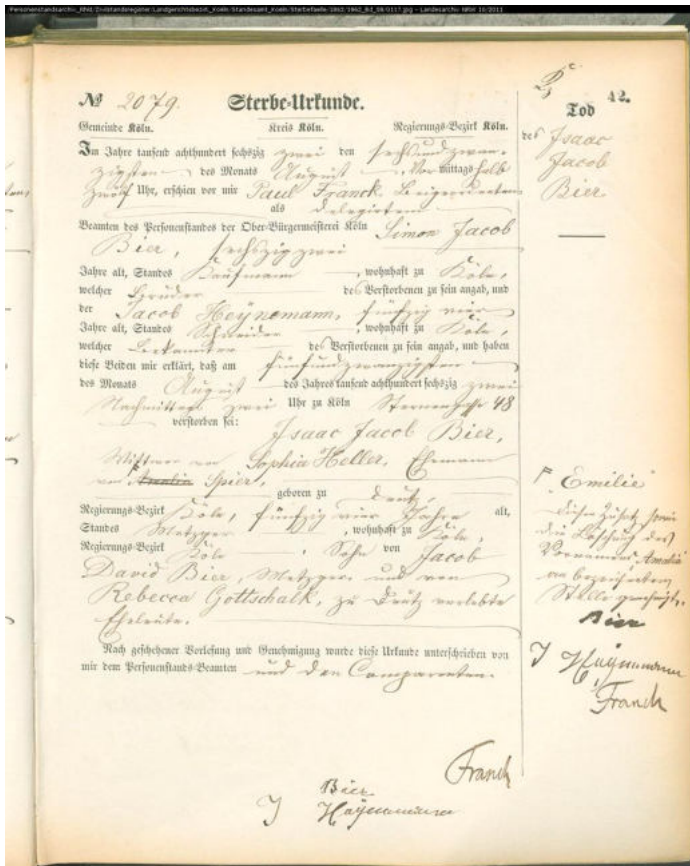 Personenstandsarchiv_Rhld/Zivilstandsregister/Landgerichtsbezirk_Koeln/Standesamt_Koeln/Sterbefaelle/1862/ - Landesarchiv NRW 10/2011
42.
№ 2079. Sterbe-Urkunde.
Gemeinde Köln. Kreis Köln. Regierungs-Bezirk Köln.
Im Jahre tausend achthundert sechszig zwei den sechsundzwan-
zigsten des Monats August Vormittags halb
zwölf Uhr, erschien vor mir Paul Franck Beigeordneten
als delegirtem
Beamten des Personenstandes der Ober-Bürgermeisterei Köln Simon Jacob
Bier, sechszig zwei
Jahre alt, Standes Kaufmann, wohnhaft zu Köln,
welcher Bruder des Verstorbenen zu sein angab, und
der Jacob Heynemann, fünfzig vier
Jahre alt, Standes Schneider, wohnhaft zu Köln,
welcher Bekannter des Verstorbenen zu sein angab, und haben
diese Beiden mir erklärt, daß am fünfundzwanzigsten
des Monats August des Jahres tausend achthundert sechszig zwei
Nachmittags zwei Uhr zu Köln Sternengasse 48
verstorben sei: Isaac Jacob Bier,
Wittwer von Sophia Heller, Ehemann
von Amalia Spier,
geboren zu Deutz,
Regierungs-Bezirk Köln, fünfzig vier Jahre alt,
Standes Metzger, wohnhaft zu Köln,
Regierungs-Bezirk Köln, Sohn von Jacob
David Bier, Metzger und von
Rebecca Gottschalk, zu Deutz verlebte
Eheleute.
Nach geschehener Vorlesung und Genehmigung wurde diese Urkunde unterschrieben von
mir dem Personenstands-Beamten und den Comparenten.
Franck
Bier
J Heynemann
Tod
des Isaac
Jacob
Bier
"Emilie"
diesen Zusatz sowie
die Löschung des
Vornamens "Amalia"
an bezeichneter
Stelle genehmigt.
Bier
J Heynemann
Franck